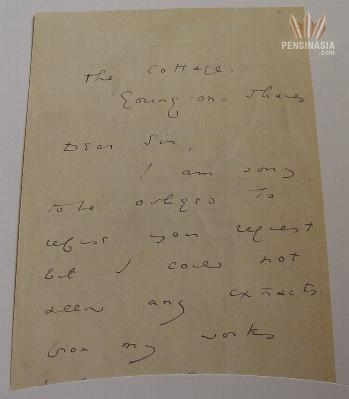 PENSINASIA
.com
The Cottage.
Goring-on-Thames
Dear Sir,
I am sorry
to be obliged to
refuse your request
but I could not
allow any extracts
from my works